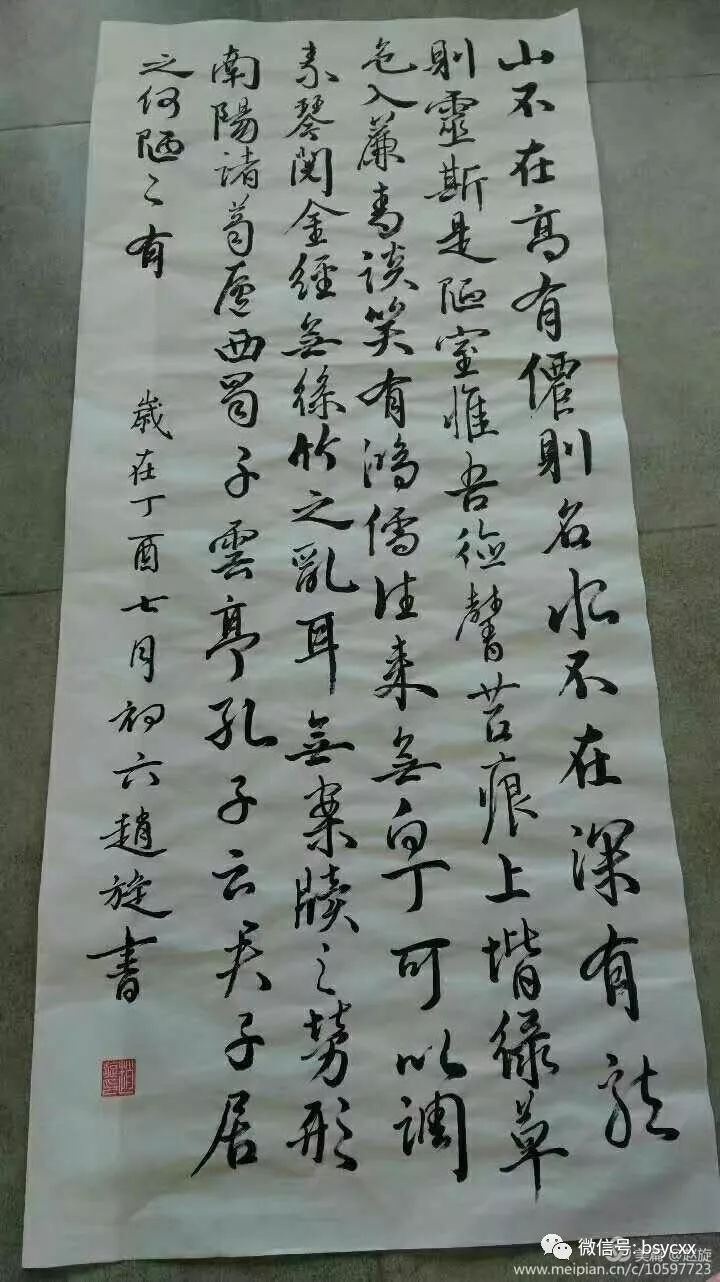 山不在高有僊則名水不在深有龍
則靈斯是陋室惟吾德馨苔痕上堦綠草
色入簾青談笑有鴻儒往来無白丁可以調
素琴閱金經無絲竹之亂耳無案牘之勞形
南陽諸葛廬西蜀子雲亭孔子云君子居
之何陋之有
歲在丁酉七月初六趙旋書
微信号: bsycxx
美篇 @赵旋
www.meipian.cn/c/10597723